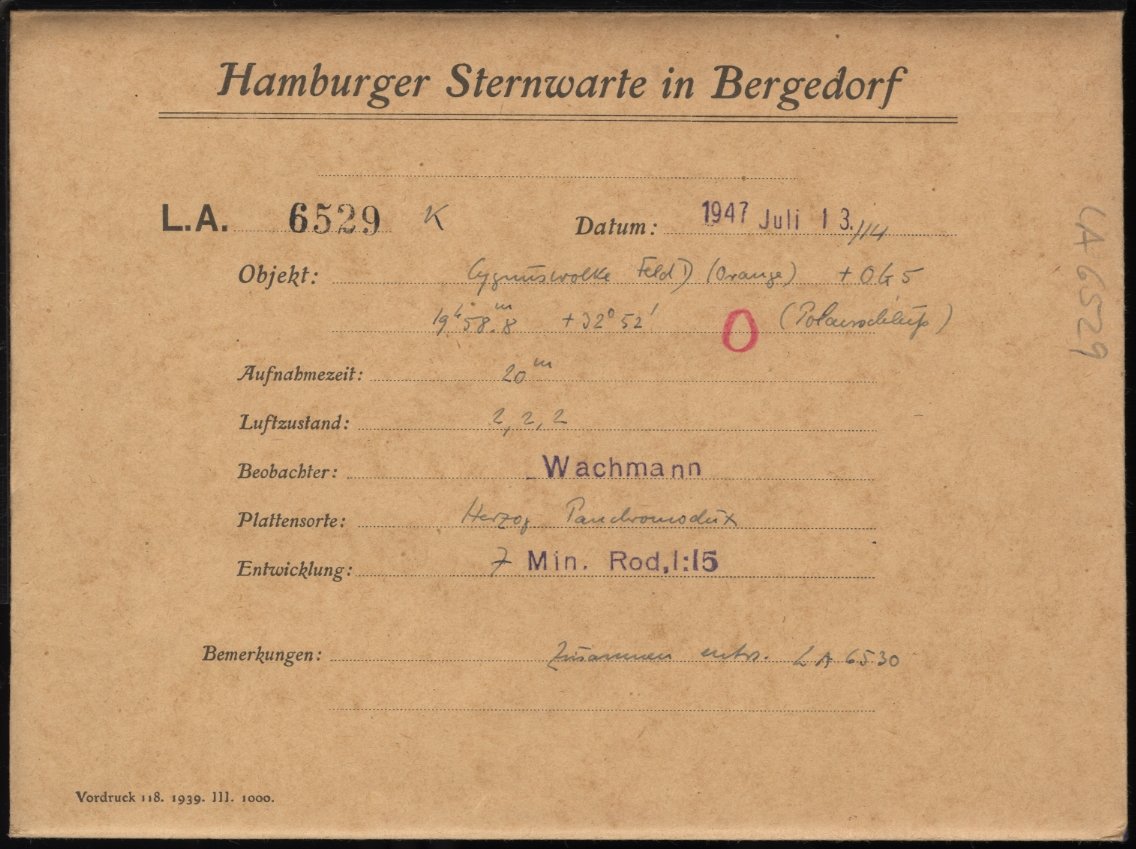 Hamburger Sternwarte in Bergedorf
L.A. 6529 K
Datum: 1947 Juli 13./14
Objekt: Cygnuswolke Feld D (Orange) + OG 5
19h 58m.8 +32° 52' O (Polanschluß)
Aufnahmezeit: 20m
Luftzustand: 2, 2, 2
Beobachter: Wachmann
Plattensorte: Herzog Panchromodux
Entwicklung: 7 Min. Rod. 1:15
Bemerkungen: Zusammen entw. LA 6530
Vordruck 118. 1939. III. 1000.
LA 6529